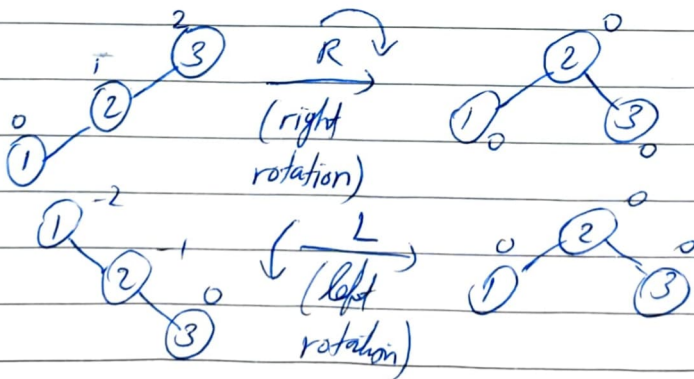 2
3
1
2
0
1
R
(right
rotation)
0
2
1
0
3
0
1
-2
2
-1
3
0
L
(left
rotation)
0
2
0
1
0
3